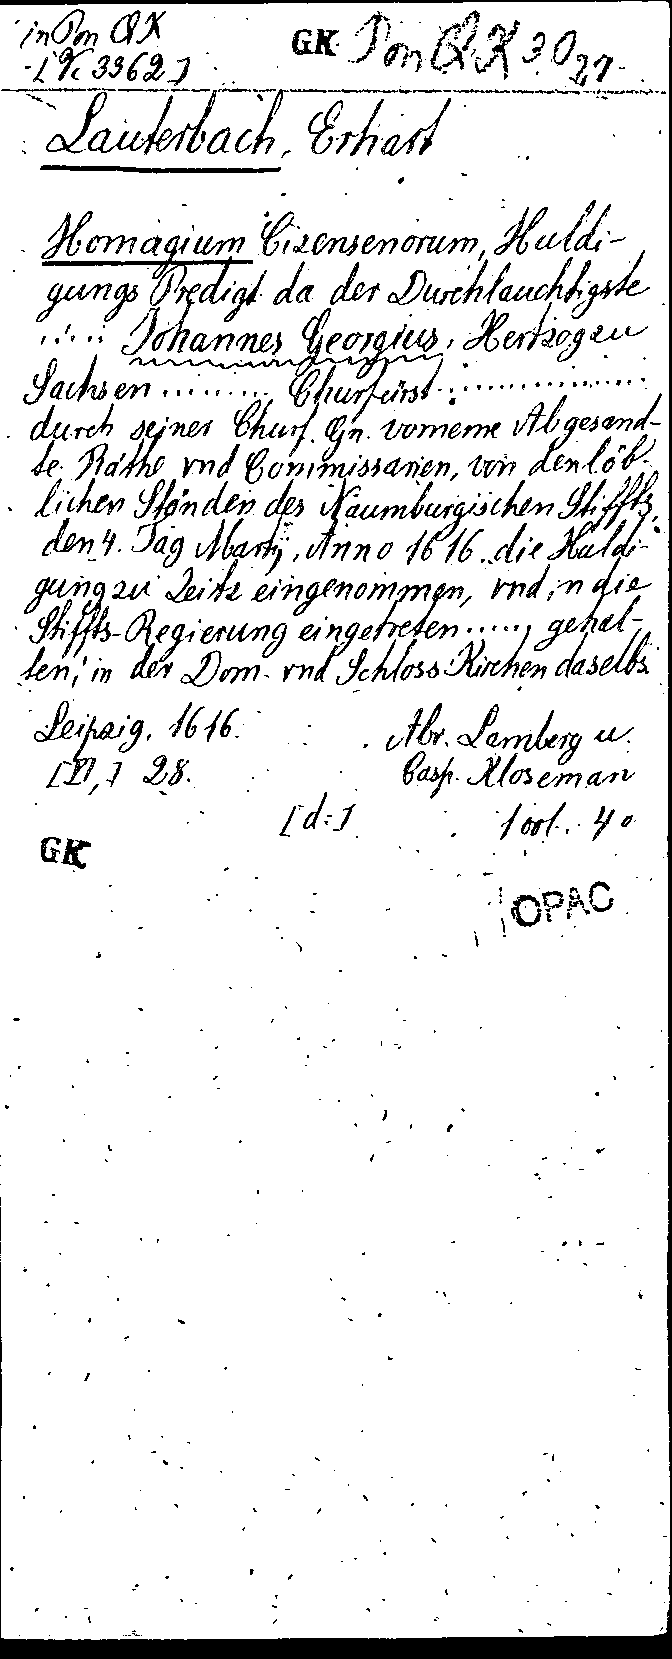 in Pon QK GK Pon QK 3027
-[Vc 3362]
Lauterbach, Erhart
Homagium Cizensenorum, Huldi-
gungs Predigt da der Durchlauchtigste
..... Johannes Georgius, Hertzog zu
Sachsen ......... Churfürst ................
durch seiner Churf. Gn. vorneme Abgesand-
te Räthe vnd Commissarien, von den löb-
lichen Ständen des Naumburgischen Stiffts,
den 4. Tag Martij, Anno 1616. die Huldi-
gung zu Zeitz eingenommen, vnd in die
Stiffts-Regierung eingetreten ....., gehal-
ten, in der Dom- vnd Schloss-Kirchen daselbs
Leipzig, 1616. Abr. Lamberg u.
28. Casp. Kloseman
[d:] 4°
GK
OPAC